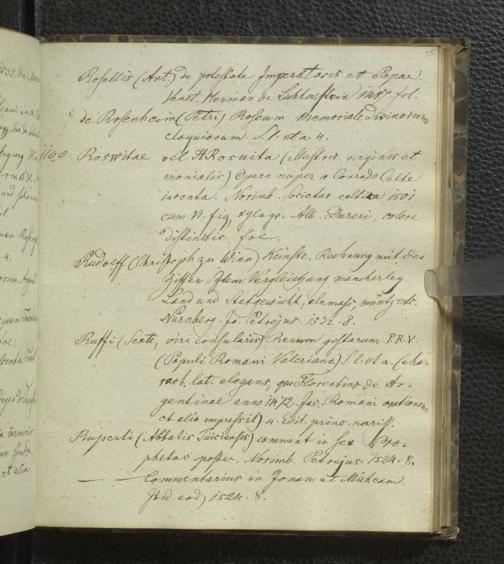 Rosellis (Ant.) de potestate Imperatoris et Papae
Venet. Herman de Lichtenstein 1487. fol.
de Rosenheim (Petri) Roseum Memoriale Divinorum
eloquiorum. S. l. et a. 4.
Roswitae vel Hrosvita (illustris virginis et
monialis) Opera nuper a Conrado Celte
inventa. Norimb. Societas celtica 1501
cum VI. fig. xylogr. Alb. Dureri, colore
distinctis. fol.
Rudolff (Christoph zu Wien) Künstl. Rechnung mit der
Ziffer Item Vergleichung mancherley
Land und Stet gewicht, elemass, müntz etc.
Nürnberg. Jo. Petrejus 1532. 8.
Ruffi (Sexti, viri consularis) Rerum gestarum P.R.V.
(Populi Romani Valeriano) S. l. et a. (cha-
ract. lat. elegans, quo Florentinus de Ar-
gentina anno 1472. Jac. Romani orationem
et alia impressit) 4. Edit. princ. rariss.
Ruperti (Abbatis Tuiciensis) comment. in sex pro-
phetas poster. Norimb. Petrejus 1524. 8.
— — Commentarius in Jonam et Micheam
Ibid. eod) 1524. 8.